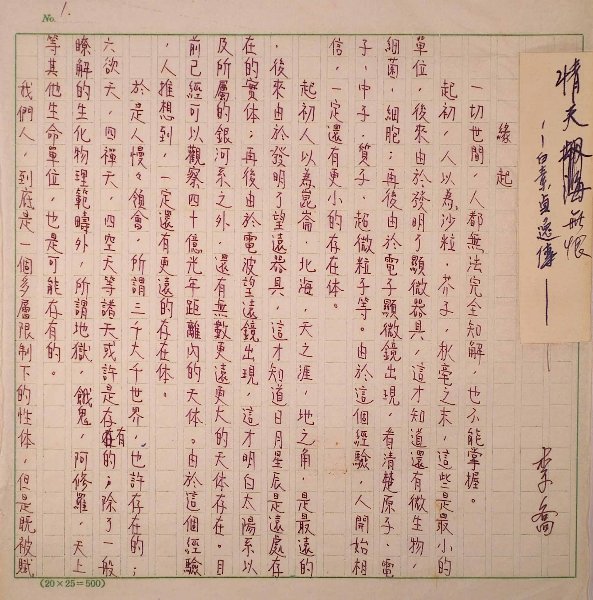 No. 1.
情天無恨
——白素貞逸傳——
李喬
緣起
一切世間，人都無法完全知解，也不能掌握。
起初，人以為沙粒，芥子，秋毫之末，這些是最小的
單位，後來由於發明了顯微器具，這才知道還有微生物，
細菌，細胞；再後由於電子顯微鏡出現，看清楚原子，電
子，中子，質子，超微粒子等。由於這個經驗，人開始相
信，一定還有更小的存在体。
起初人以為崑崙，北海，天之涯，地之角，是最遠的
，後來由於發明了望遠器具，這才知道日月星辰是遠處存
在的實体；再後由於電波望遠鏡出現，這才明白太陽系以
及所屬的銀河系之外，還有無數更遠更大的天体存在的。目
前已經可以觀察四十億光年距離內的天体。由於這個經驗
，人推想到，一定還有更遠的存在体。
於是人慢々領會，所謂三千大千世界，也許存在的；
六欲天，四禪天，四空天等諸天或許是存有的；除了一般
瞭解的生化物理範疇外，所謂地獄，餓鬼，阿修羅，天上
等其他生命單位，也是可能存有的。
我們人，到底是一個多層限制下的性体，但是既被賦
(20×25=500)